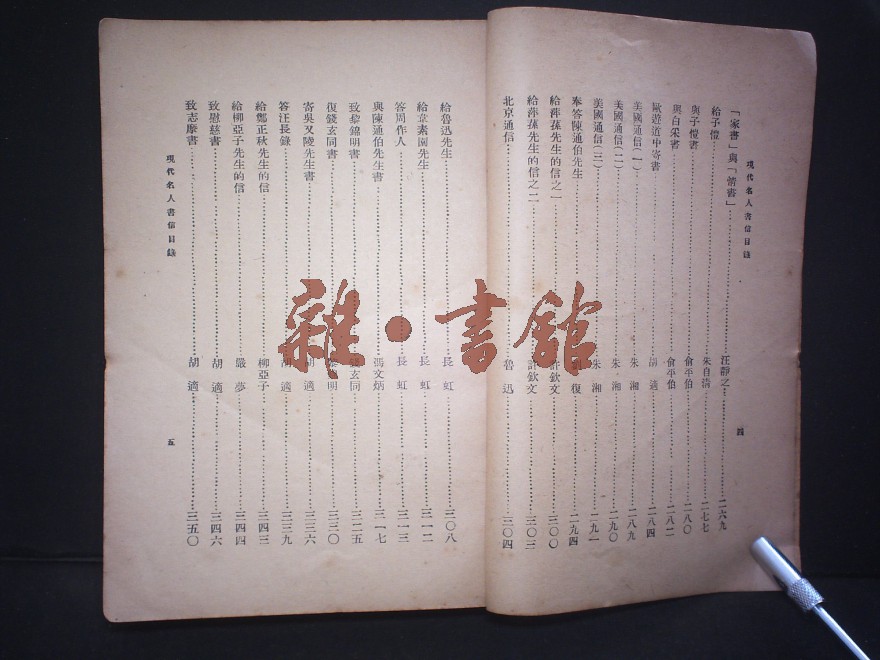 現代名人書信目錄
四
「家書」與「情書」……汪靜之……二六九
給子愷……朱自清……二七七
與子愷書……俞平伯……二八〇
與白采書……俞平伯……二八二
歐遊道中寄書……胡適……二八四
美國通信(一)……朱湘……二八九
美國通信(二)……朱湘……二九〇
美國通信(三)……朱湘……二九一
奉答陳通伯先生……復……二九四
給萍蓀先生的信之一……許欽文……三〇〇
給萍蓀先生的信之二……許欽文……三〇三
北京通信……魯迅……三〇四
給魯迅先生……長虹……三〇八
給韋素園先生……長虹……三一二
答周作人……長虹……三一三
與陳通伯先生書……馮文炳……三一七
致黎錦明書……玄同……三二五
復錢玄同書……明……三三〇
寄吳又陵先生書……胡適……三三六
答汪長祿……胡適……三三九
給鄭正秋先生的信……柳亞子……三四三
給柳亞子先生的信……嚴夢……三四四
致慰慈書……胡適……三四六
致志摩書……胡適……三五〇
現代名人書信目錄
五
雜·書館